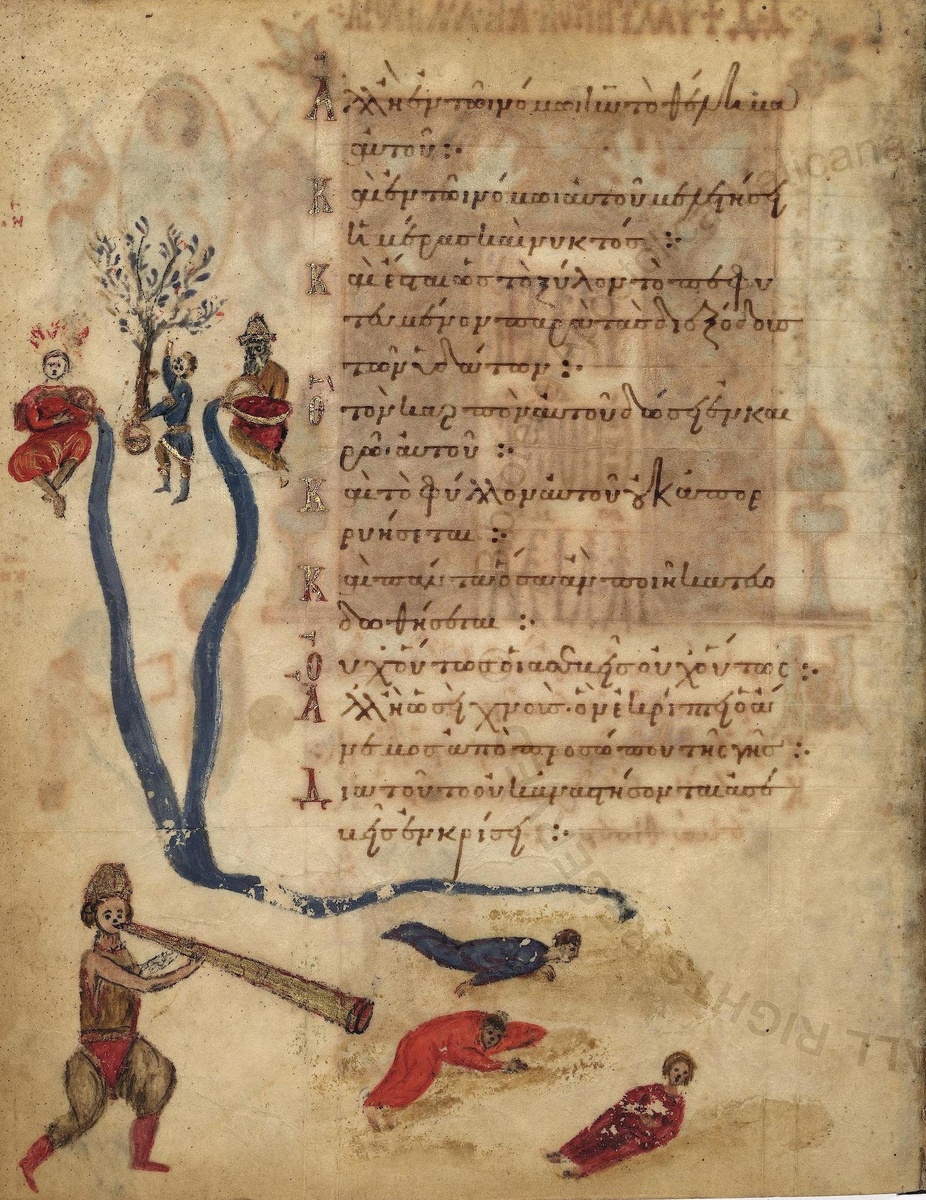 Ἀλλ' ἢ ἐν τῶ νόμω κυ τὸ θέλημα
αὐτοῦ :·
Καὶ ἐν τῶ νόμω αὐτοῦ μελετήσει
ἡμέρας καὶ νυκτός :·
Καὶ ἔσται ὡς τὸ ξύλον τὸ πεφυ
τευμένον παρὰ τὰς διεξόδους
τῶν ὑδάτων :·
Ὃ τὸν καρπὸν αὐτοῦ δώσει ἐν και
ρῶ αὐτοῦ :·
Καὶ τὸ φύλλον αὐτοῦ οὐκ ἀπορ
ρυήσεται :·
Καὶ πάντα ὅσα ἂν ποιῆ κατευο
δωθήσεται :·
Οὐχ οὕτως οἱ ἀσεβεῖς οὐχ οὕτως :·
Ἀλλ' ἢ ὡσεὶ χνοῦς ὃν ἐκρίπτει ὁ ἄ
νεμος ἀπὸ προσώπου τῆς γῆς :·
Διὰ τοῦτο οὐκ ἀναστήσονται ἀσε
βεῖς ἐν κρίσει :·